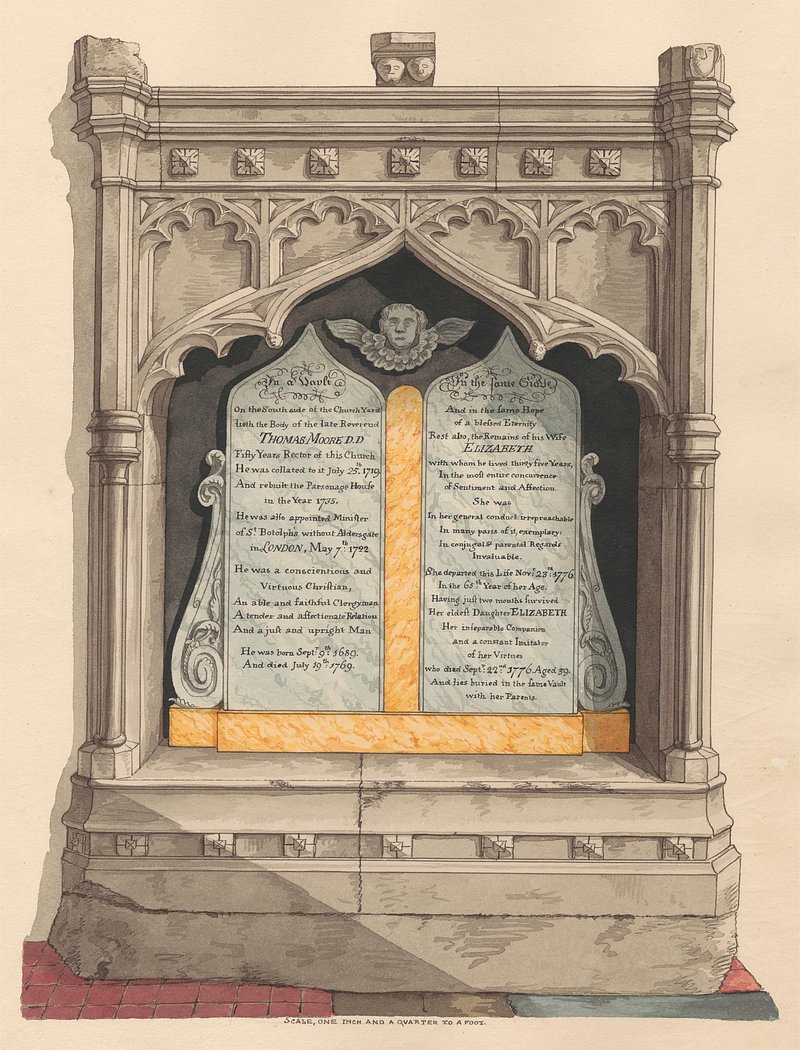 In a Vault
On the South side of the Church Yard
lieth the Body of the late Reverend
THOMAS MOORE D.D
Fifty Years Rector of this Church
He was collated to it July 25.th 1719.
And rebuilt the Parsonage House
in the Year 1735.
He was also appointed Minister
of St. Botolph's without Aldersgate
in LONDON, May 7.th: 1722
He was a conscientious and
Virtuous Christian,
An able and faithful Clergyman
A tender and affectionate Relation
And a just and upright Man
He was born Septr. 9th: 1689.
And died July 19th: 1769.
In the ſame Grave
And in the ſame Hope
of a bleſsed Eternity
Rest also, the Remains of his Wife
ELIZABETH
with whom he lived thirty five Years,
In the most entire concurrence
of Sentiment and Affection.
She was
In her general conduct irreproachable
In many parts of it, exemplary:
In conjugal & parental Regards
Invaluable.
She departed this Life Novr. 23rd: 1776
In the 65th Year of her Age.
Having juſt two months ſurvived
Her eldeſt Daughter ELIZABETH
Her inſeparable Companion
and a constant Imitator
of her Virtues
who died Septr. 22nd 1776 Aged 39.
And lies buried in the ſame Vault
with her Parents.
SCALE, ONE INCH AND A QUARTER TO A FOOT.